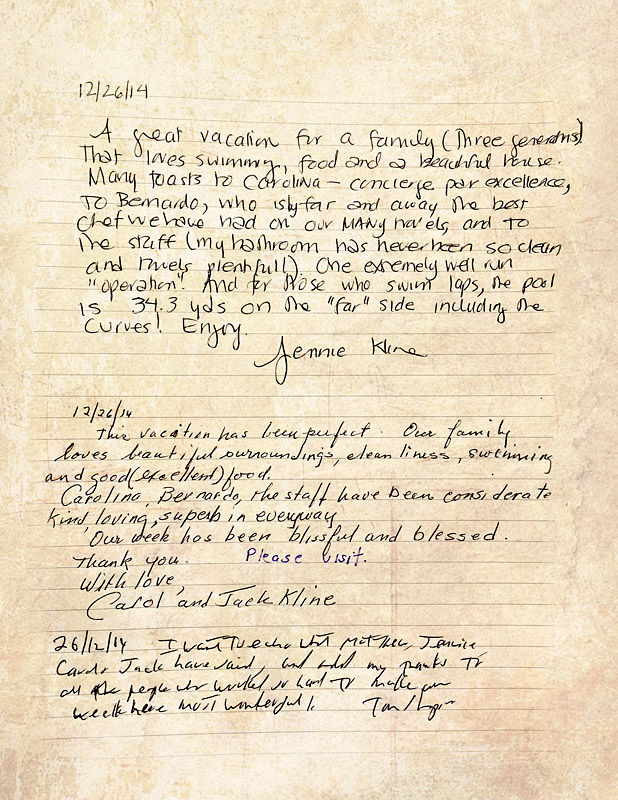 12/26/14
A great vacation for a family (Three generations)
That loves swimming, food and a beautiful house.
Many toasts to Carolina – concierge par excellence,
To Bernardo, who is by far and away the best
Chef we have had on our MANY travels, and to
the staff (my bathroom has never been so clean
and towels plentiful!). One extremely well run
"operation". And for those who swim laps, the pool
is 34.3 yds on the "far" side including the
curves! Enjoy.
Jennie Kline
12/26/14
This vacation has been perfect. Our family
loves beautiful surroundings, cleanliness, swimming
and good (excellent) food.
Carolina, Bernardo, the staff have been considerate
kind, loving, superb in everyway
Our week has been blissful and blessed.
Thank you. Please visit.
With love,
Carol and Jack Kline
26/12/14 I want to echo what
Carol Jack have said, and add my thanks to
all the people who worked so hard to make our
week here most wonderful!